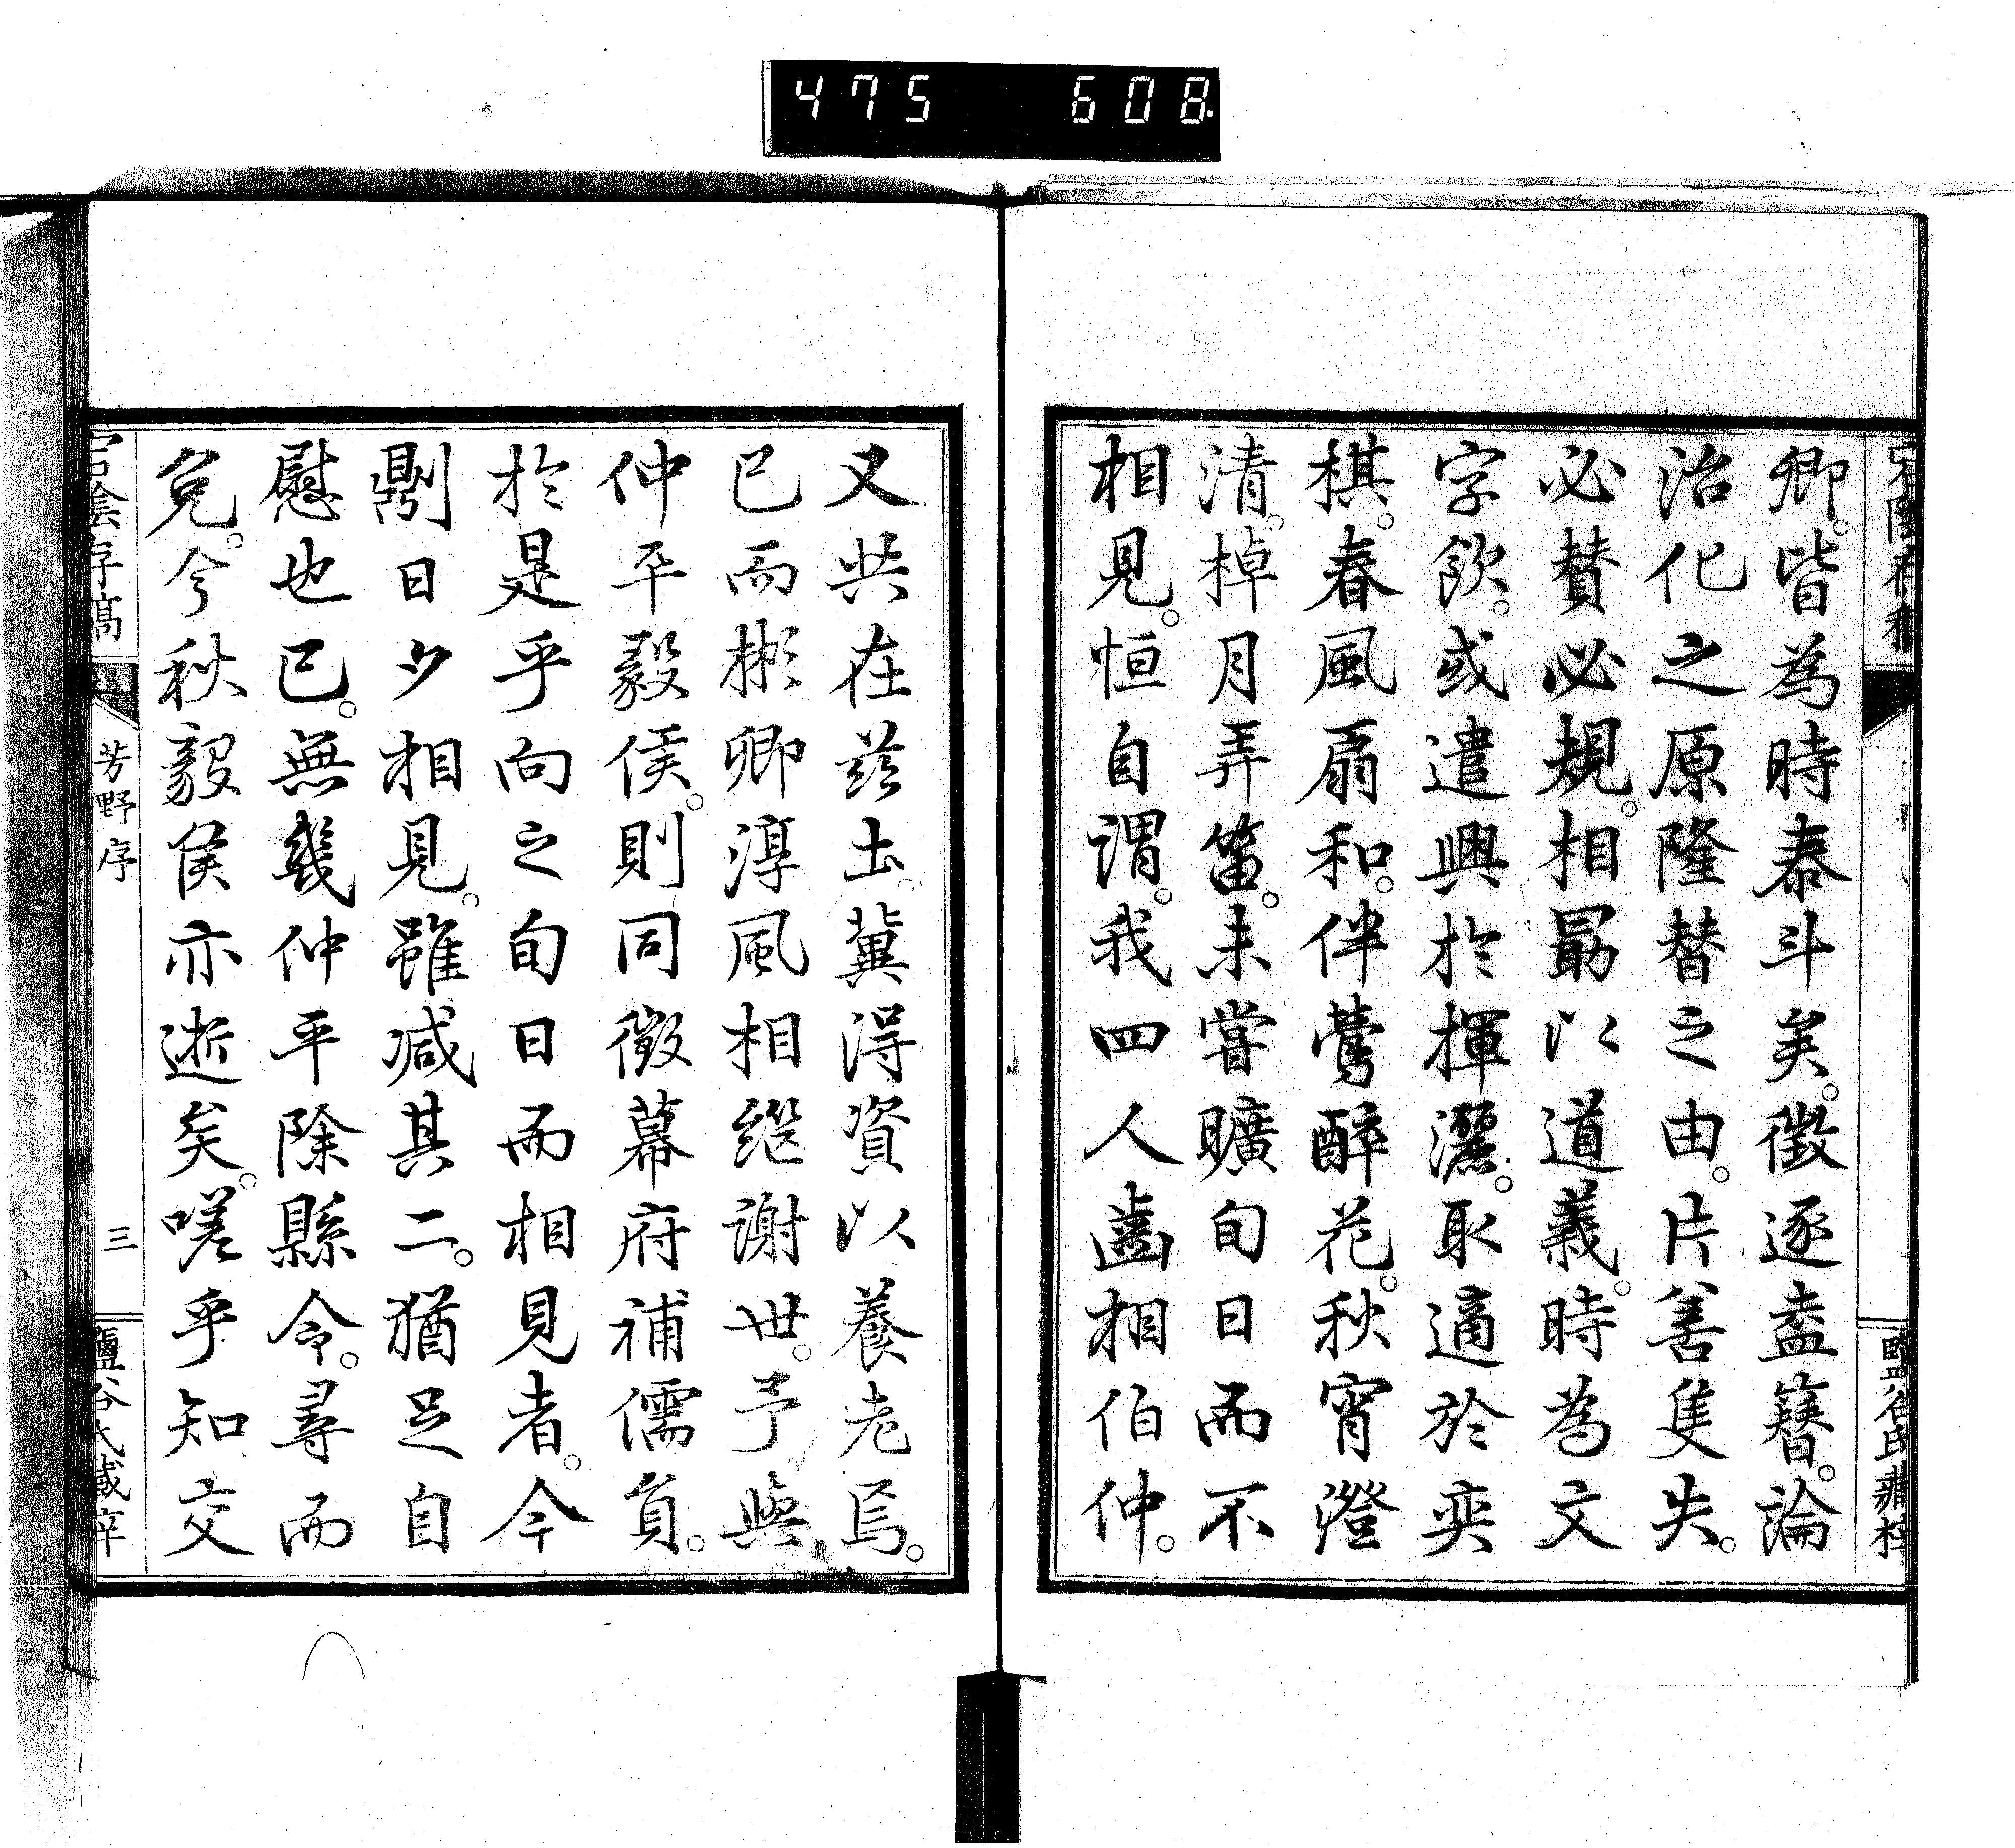 475 608
卿。皆為時泰斗矣。徵逐盍簪。論
治化之原隆替之由。片善隻失。
必賛必規。相勗以道義。時為文
字飲。或遣興於揮灑。取適於奕
棋。春風扇和。伴鶯醉花。秋宵澄
清。棹月弄笛。未嘗曠旬日而不
相見。恒自謂。我四人齒相伯仲。
又共在玆土。冀得資以養老焉。
已而彬卿淳風相繼謝世。予與
仲平毅侯。則同徵幕府補儒員。
於是乎向之旬日而相見者。今
則日夕相見。雖减其二。猶足自
慰也已。無幾仲平除縣令。尋而
免。今秋毅侯亦逝矣。嗟乎知交
宕陰存稿
芳野序
三
鹽谷氏藏梓